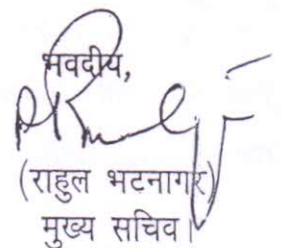 भवदीय,
(राहुल भटनागर)
मुख्य सचिव।